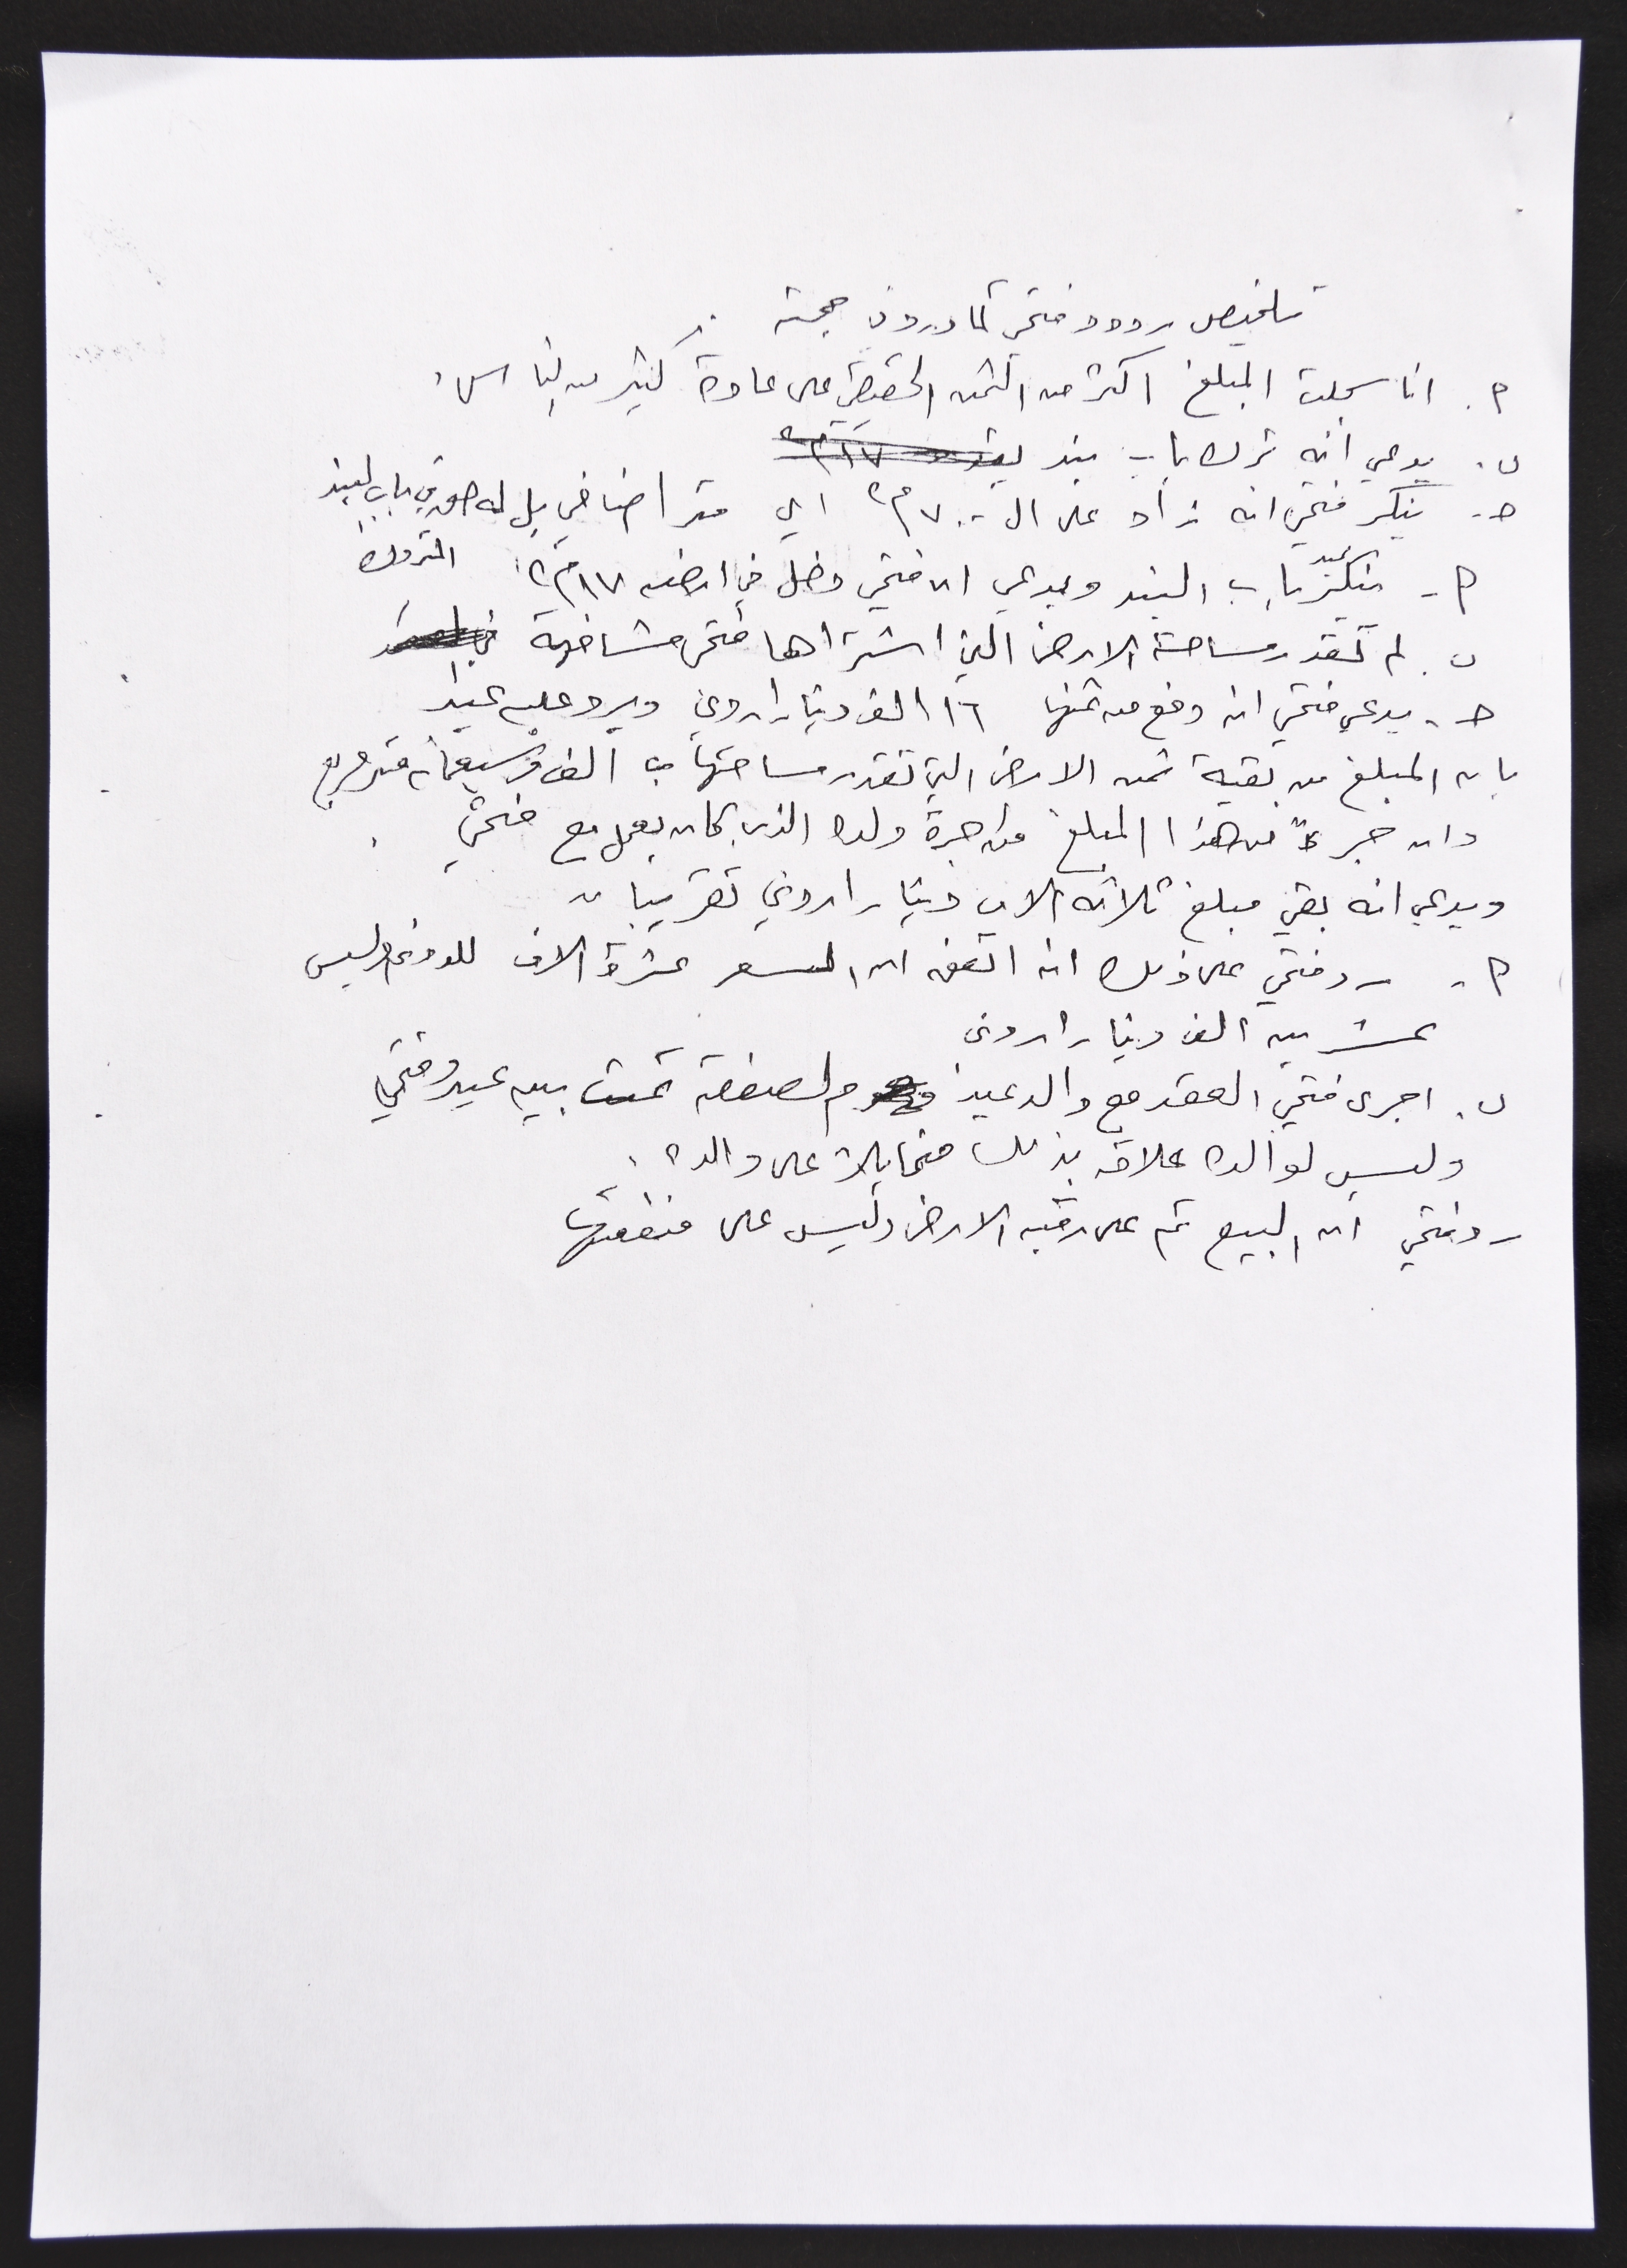 تلخيص ردود فتحي كما وردت
م. انا سجلت المبلغ اكثر من الثمن الحقيقي على عادة كثير من الناس.
ن. يدعي انه ترك باب بند
ح. ينكر فتحي انه زاد على ال ٧٠٠ م٢ اي متر اضافي بل له حق في باب البند المتروك
م. ينكر عبد باب البند ويدعي ان فتحي دخل في ارضه ١٧ م٢.
ن. لم تقدر مساحة الارض التي اشتراها فتحي مشافهة
ح. يدعي فتحي انه دفع من ثمنها ١٦ الف دينار اردني ويرد عليه عبد
بان المبلغ من بقية ثمن الارض التي تقدر مساحتها ب الف وسبعمائه متر مربع
وان جزءً من هذا المبلغ من اجرة ولده الذي كان يعمل مع فتحي.
ويدعي انه بقي مبلغ ثلاثه الاف دينار اردني تقريبا
م. رد فتحي على ذلك انه اتفق ان السعر عشرة الاف للدونم وليس
عشرين الف دينار اردني
ن. اجرى فتحي العقد مع والد عبد الصفقة تمت بين عبد وفتحي
وليس لوالده علاقه بذلك على والده.
رد فتحي ان البيع تم على رقبه الارض وليس على منفعتها